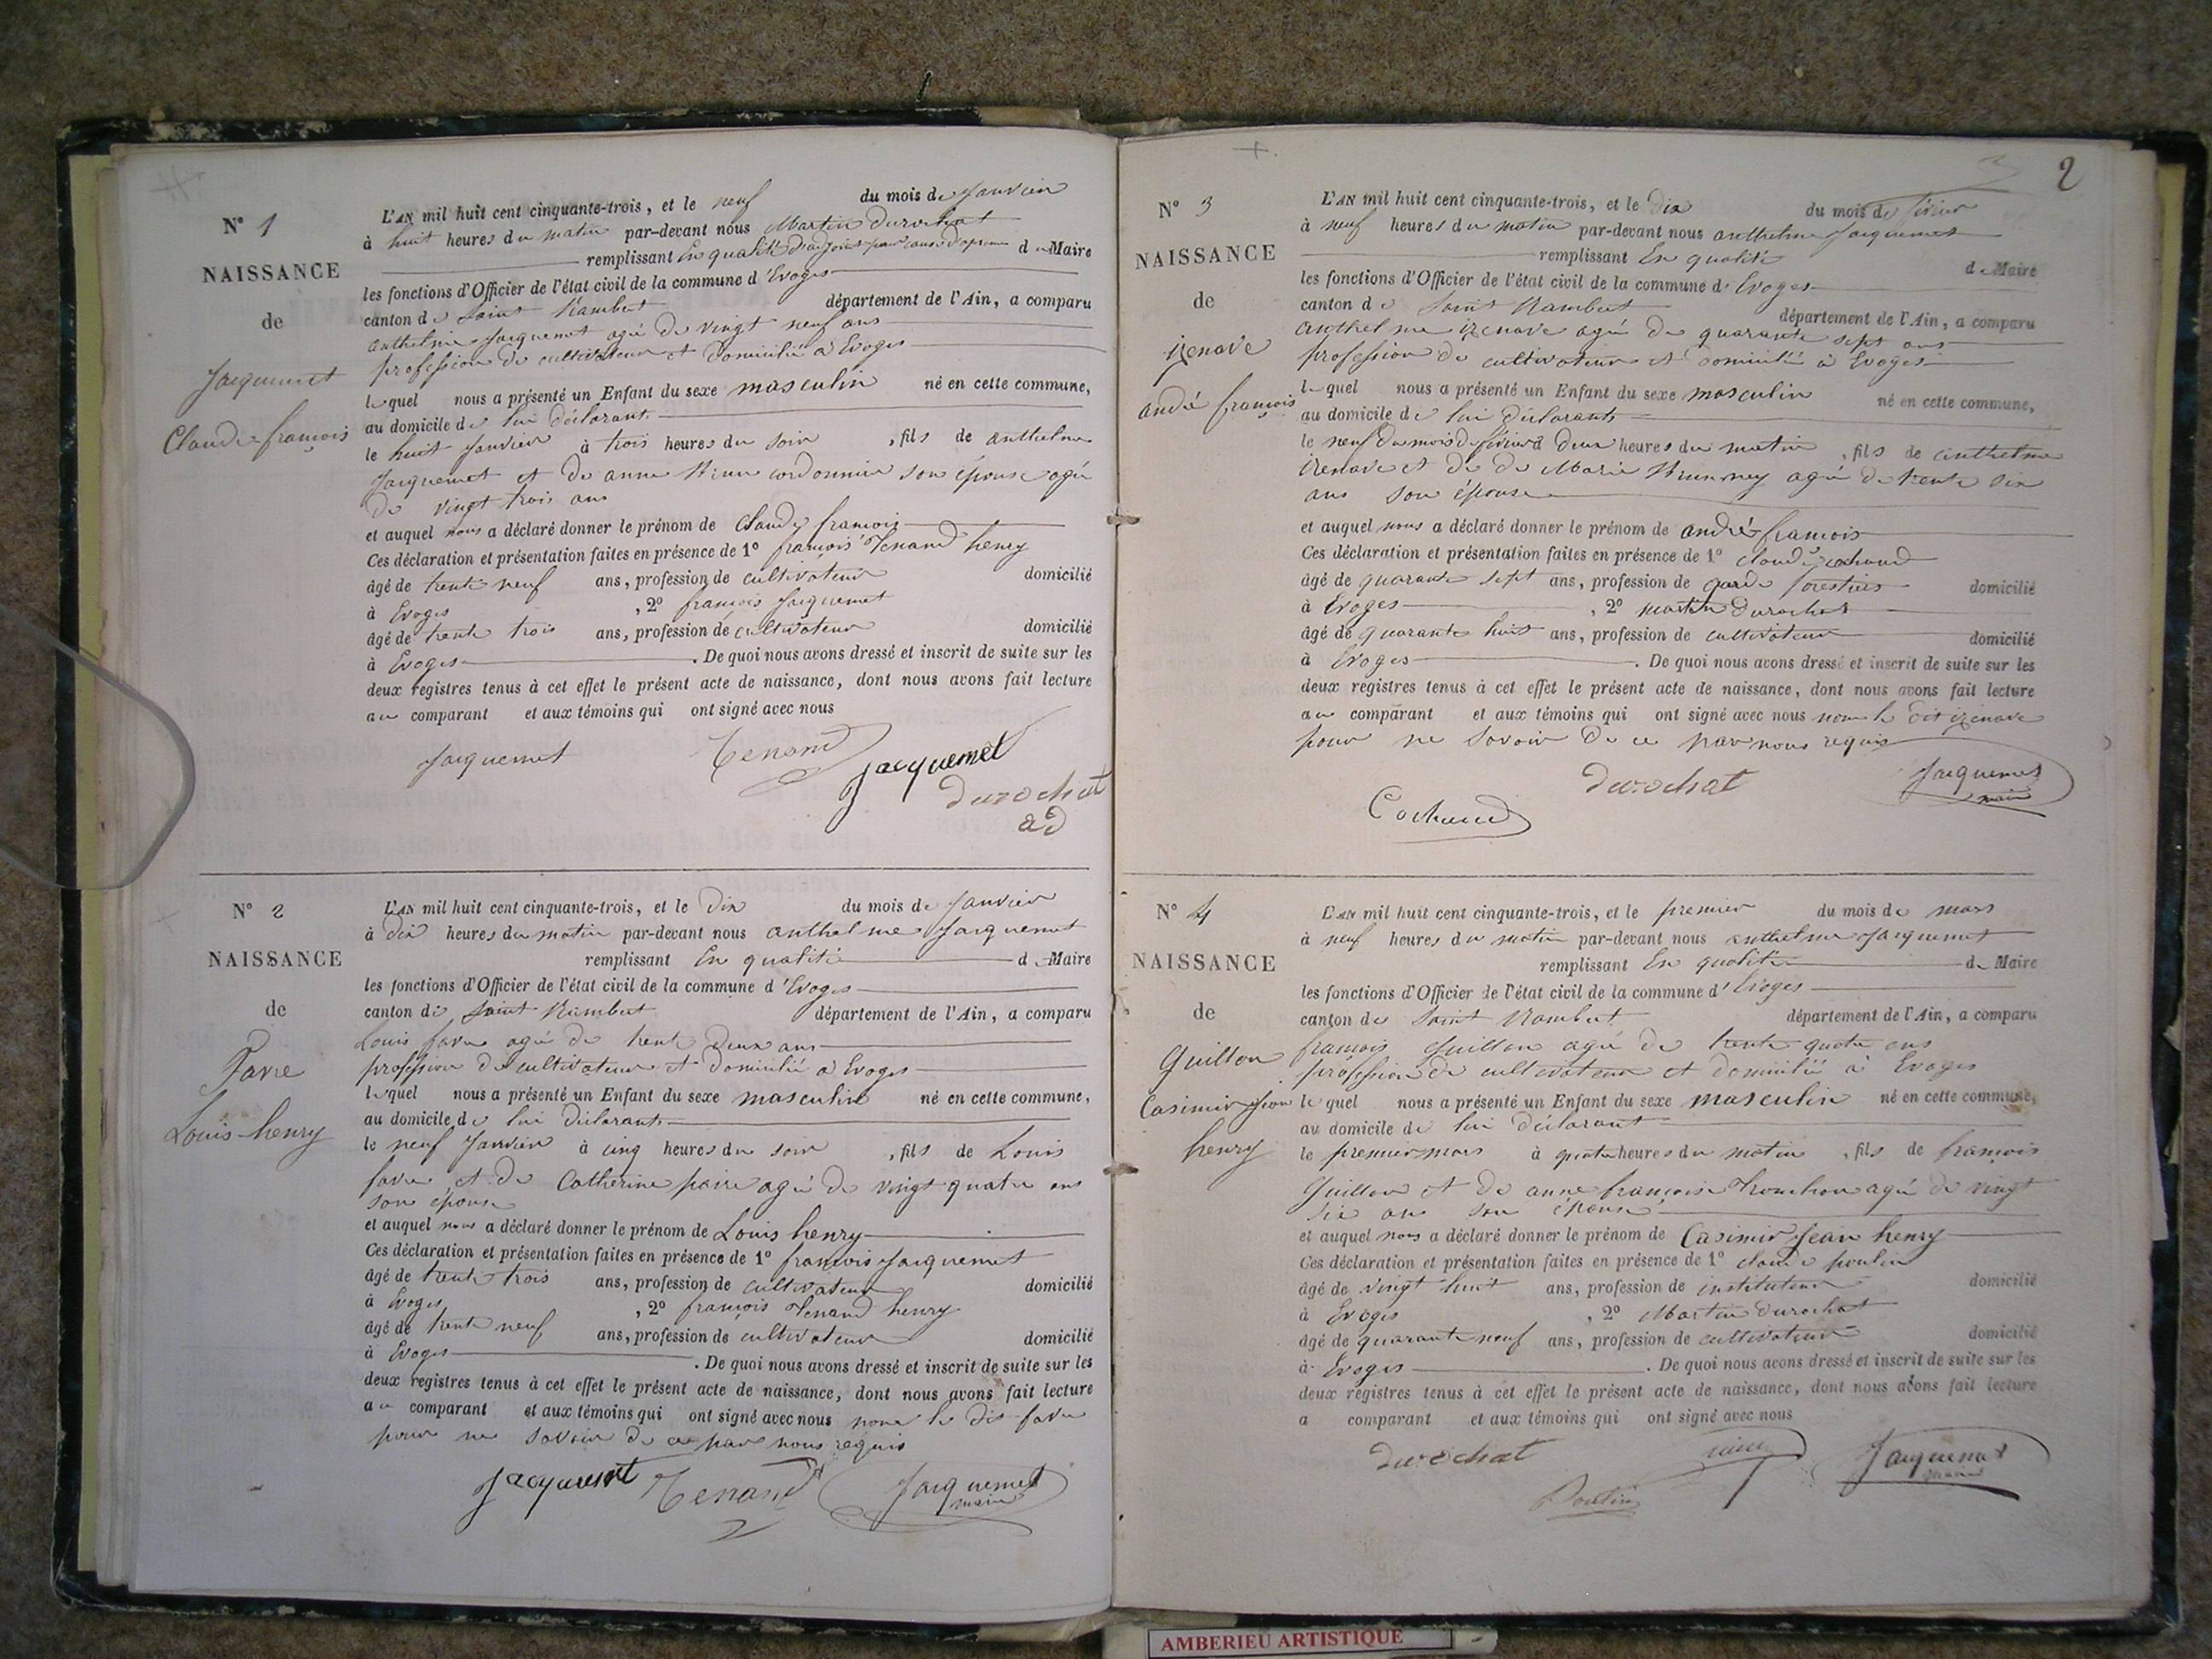 N° 1
NAISSANCE
de
Jacquemet
Claude françois
L'AN mil huit cent cinquante-trois, et le neuf du mois de Janvier
à huit heures du matin par-devant nous Martin Durochat
remplissant En qualité d'adjoint pour cause d' du Maire
les fonctions d'Officier de l'état civil de la commune d'Evoges
canton de Saint Rambert département de l'Ain, a comparu
anthelme Jacquemet agé de vingt neuf ans
profession de cultivateur et domicilié à Evoges
lequel nous a présenté un Enfant du sexe masculin né en cette commune,
au domicile de lui déclarant
le huit Janvier à trois heures du soir , fils de anthelme
Jacquemet et de anne cordonnier son épouse agée
de vingt trois ans
et auquel nous a déclaré donner le prénom de Claude francois
Ces déclaration et présentation faites en présence de 1° françois Tenand henry
âgé de trente neuf ans, profession de cultivateur domicilié
à Evoges , 2° françois Jacquemet
âgé de trente trois ans, profession de cultivateur domicilié
à Evoges . De quoi nous avons dressé et inscrit de suite sur les
deux registres tenus à cet effet le présent acte de naissance, dont nous avons fait lecture
au comparant et aux témoins qui ont signé avec nous
Jacquemet Tenand Jacquemet
Durochat
ad
N° 2
NAISSANCE
de
Favre
Louis henry
L'AN mil huit cent cinquante-trois, et le Dix du mois de Janvier
à Dix heures du matin par-devant nous anthelme Jacquemet
remplissant En qualité de Maire
les fonctions d'Officier de l'état civil de la commune d'Evoges
canton de Saint Rambert département de l'Ain, a comparu
Louis favre agé de trente deux ans
profession de cultivateur et domicilié à Evoges
lequel nous a présenté un Enfant du sexe masculin né en cette commune,
au domicile de lui déclarant
le neuf Janvier à cinq heures du soir , fils de Louis
favre et de Catherine agée de vingt quatre ans
son épouse
et auquel nous a déclaré donner le prénom de Louis henry
Ces déclaration et présentation faites en présence de 1° françois Jacquemet
âgé de trente trois ans, profession de cultivateur domicilié
à Evoges , 2° françois Tenand henry
âgé de trente neuf ans, profession de cultivateur domicilié
à Evoges . De quoi nous avons dressé et inscrit de suite sur les
deux registres tenus à cet effet le présent acte de naissance, dont nous avons fait lecture
au comparant et aux témoins qui ont signé avec nous non le dit favre
pour ne savoir de ce par nous requis
Jacquemet Tenand Jacquemet
maire
2
N° 3
NAISSANCE
de
izenave
andré françois
L'AN mil huit cent cinquante-trois, et le Dix du mois de février
à neuf heures du matin par-devant nous anthelme Jacquemet
remplissant En qualité de Maire
les fonctions d'Officier de l'état civil de la commune d'Evoges
canton de Saint Rambert département de l'Ain, a comparu
anthelme izenave agé de quarante sept ans
profession de cultivateur et domicilié à Evoges
lequel nous a présenté un Enfant du sexe masculin né en cette commune,
au domicile de lui déclarants
le neuf du mois de février à deux heures du matin , fils de anthelme
izenave et de de Marie agée de trente six
ans son épouse
et auquel nous a déclaré donner le prénom de andré francois
Ces déclaration et présentation faites en présence de 1° claude cochand
âgé de quarante sept ans, profession de garde forestiers domicilié
à Evoges , 2° martin durochat
âgé de quarante huit ans, profession de cultivateur domicilié
à Evoges . De quoi nous avons dressé et inscrit de suite sur les
deux registres tenus à cet effet le présent acte de naissance, dont nous avons fait lecture
au comparant et aux témoins qui ont signé avec nous non le dit izenave
pour ne savoir de ce par nous requis
Durochat Jacquemet
maire
Cochand
N° 4
NAISSANCE
de
Guillon
Casimir jean
henry
L'AN mil huit cent cinquante-trois, et le premier du mois de mars
à neuf heures du matin par-devant nous anthelme Jacquemet
remplissant En qualité de Maire
les fonctions d'Officier de l'état civil de la commune d'Evoges
canton de Saint Rambert département de l'Ain, a comparu
francois Guillon agé de trente quatre ans
profession de cultivateur et domicilié à Evoges
lequel nous a présenté un Enfant du sexe masculin né en cette commune,
au domicile de lui déclarant
le premier mars à quatre heures du matin , fils de françois
Guillon et de anne françoise agée de vingt
six ans son épouse
et auquel nous a déclaré donner le prénom de Casimir Jean henry
Ces déclaration et présentation faites en présence de 1° claude
âgé de vingt huit ans, profession de instituteur domicilié
à Evoges , 2° Martin durochat
âgé de quarante neuf ans, profession de cultivateur domicilié
à Evoges . De quoi nous avons dressé et inscrit de suite sur les
deux registres tenus à cet effet le présent acte de naissance, dont nous avons fait lecture
a comparant et aux témoins qui ont signé avec nous
Durochat Jacquemet
AMBERIEU ARTISTIQUE